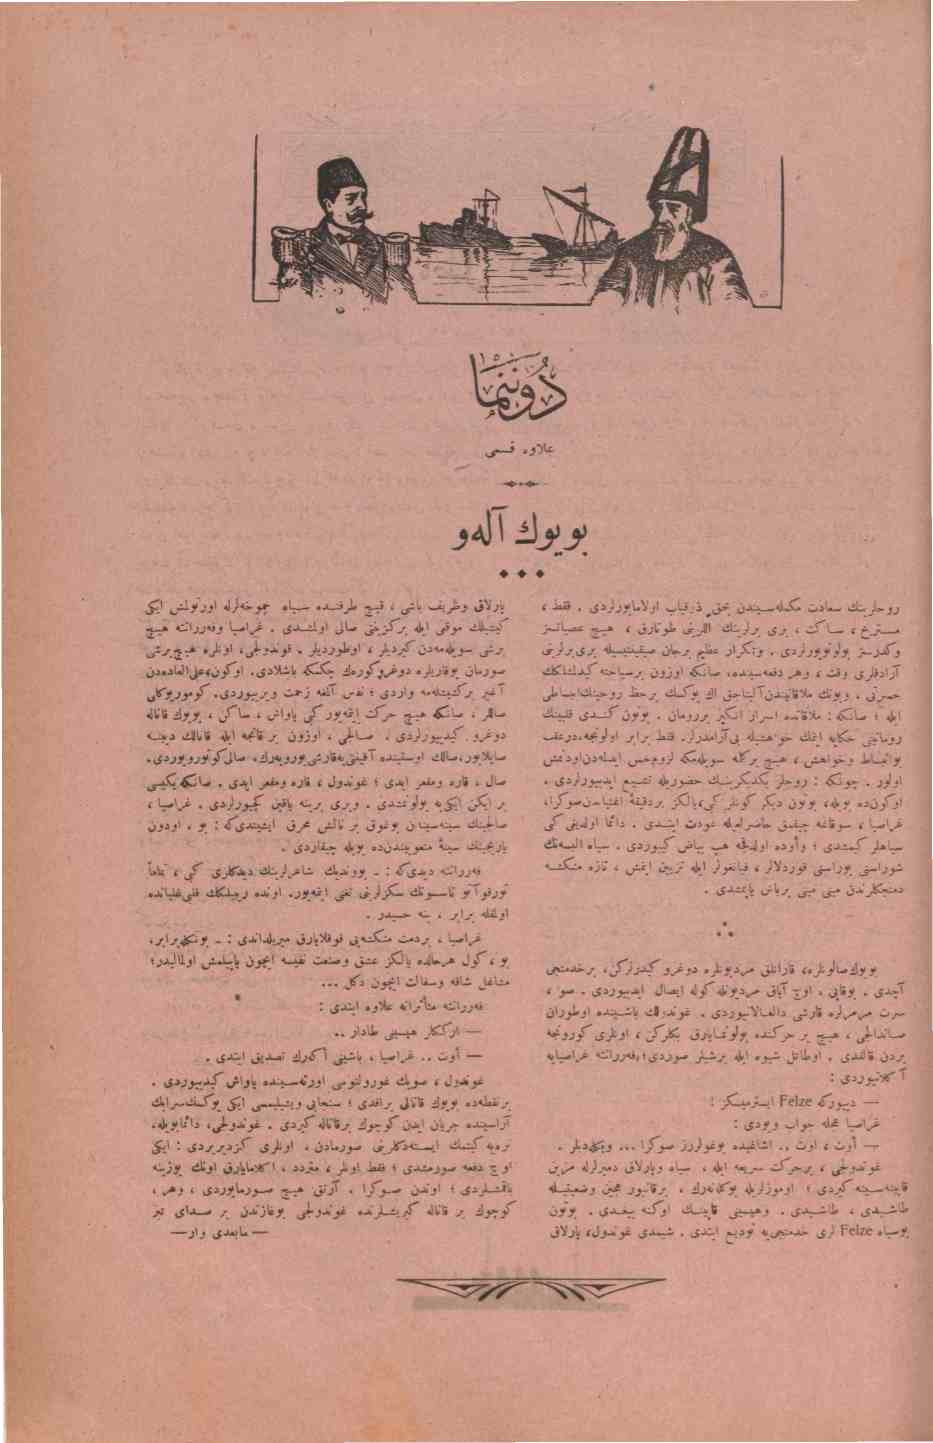 دوننما
علاوه قسمی
بویوك آله‌و
روحلرینك سعادت مكمله‌سیندن بحق ذوقیاب اولامایورلردی . فقط ،
مستریح ، ساكت ، بری برلرینك اللرینی طوتارق ، هیچ عصبانتسز
وكدرسز بولونویورلردی . وتكرار عظیم برجان صیقینتیسیله بری‌برلرینی
آرادقلری وقت ، وهر دفعه‌سینده، صانكه اوزون برسیاحته كیدلدكلك
ایله ؛ صانكه : ملاقاتده اسرار انكیز بررومان . بوتون كندی قلبینك
روماننی حكایه ایتمك خواهشیله بی‌آرامدرلر. فقط برابر اولونجه، درعقب
بوانبساط وخواهش ، هیچ بركله سویله‌مكه لزوم
اولور . چونكه : روحلر یكدیكرینك حضوریله تشبع ایدییورلردی .
اوكون‌ده بویله، بوتون دیكر كونلر كبی، یالكز بردقیقهٔ
غراصیا ، سوقاغه چیقمق حاضرلغیله عودت ایتدی . دائما اولدیغی كبی
سیاهلر كیمشدی ؛ وأوده اولدقجه هپ بیاض كییوردی . سیاه البسه‌نك
شوراسنی بوراسنی قوردلالر ، فیانغولر ایله تزیین ایتمش ، تازه منكشه
دمتجكلرندن مینی مینی برباش یاپمشدی .
بویوك صالونلره، قارانلق مردیونلره دوغرو كیدرلركن، برخدمتجی
آچدی . بوقاپی . اوچ آیاق مردیونله كوله ایصال ایدییوردی . صو ،
سرت مرمرلره قارشی دالغالانیوردی . غوندولك باشینده اوطوران
صاندالجی ، هیچ بر حركتده بولونمایارق بكلركن ، اونلری كورونجه
بردن قالقدی . اوطاتلی شیوه ایله برشیلر صوردی؛ فه‌ررانته غراصیایه
آكلاتیوردی :
— دییوركه Felze ایسترمیسكز ؟
غراصیا عجله جواب ویردی :
— أوت ، اوت .. اشاغیده بوغولورز صوكرا ...
غوندولجی ، برحركت سریعه ایله ، سیاه وپارلاق دمیرلرله مزین
قاپینه‌سینه كیردی ؛ اوموزلریله
طاشیدی ، طاشیدی . وهپسنی قاپینك اوكنه ییغدی . بوتون
بوسیاه Felze لری خدمتجی‌یه تودیع ایتدی . شیمدی غوندول، پارلاق
پارلاق وظریف باشی ، قیچ طرفنده سیاه
كیشیلك موقی ایله بركزینتی صالی اولمشدی . غراصیا وفه‌ررانته هیچ
برشی سویله‌مه‌دن كیردیلر ، اوطوردیلر . غوندولجی، اونلره هیچ‌برشی
سورمان یوقاریلره دوغروكوره‌ك چكمكه باشلادی. اوكون، علی‌العاده‌دن
آغیر بركثیفلمه واردی ؛ نفس آلمغه زحمت ویرییوردی. كوموریوكلی
صاللر ، صانكه هیچ حركت ایتمه‌یور كبی یاواش ، ساكن ، بویوك قاناله
دوغرو كیدییورلردی . صالجی ، اوزون بر قانجه ایله قنالك دیبنه
صال ، قاره ومقعر ایدی ؛ غوندول ، قاره ومقعر ایدی . صانكه یكیسی
بر ایكن ایكی‌یه بولونمشدی . وبری برینه یاقین كچیورلردی . غراصیا ،
صالجینك سینه‌سیندن بوغوق بر نالش محرق ایشیتدی‌كه : بو ، اودون
یاریجینك سینهٔ متعوبیندن‌ده بویله چیقاردی .
فه‌ررانته دیدی‌كه : ـ بووندیك شاعرلرینك دیدكلری كبی ، تماماً
تورقوآتو تاسسونك سكزلرینی تغنی ایتمه‌یور. اونده ریمیلكك قلبی غلیانده
اولمقله برابر ، ینه حسیدر .
غراصیا ، بردمت منكشه‌یی قوقلایارق میریلداندی : ـ بونكله‌برابر،
بو ، كول هرحالده یالكز عشق وصنعت نفیسه ایچون یاپیلمش اولمالیدر؛
مشاغل شاقه وسفالت ایچون دكل ...
فه‌ررانته متأثرانه علاوه ایتدی :
— ارككلر هپسینی طادار ..
— أوت .. غراصیا ، باشینی اكه‌رك تصدیق ایتدی .
غوندول ، صویك غورولتوسی اورته‌سینده یاواش كیدییوردی .
برنقطه‌ده بویوك قنالی براقدی ؛ سنجابی ویشیلیمسی ایكی یوكسك‌سرایك
آراسینده جریان ایدن كوچوك برقاناله كیردی . غوندولجی، دائمابویله،
نره‌یه كیتمك ایسته‌دكلرینی صورمادن، اونلری كزدیریردی : ایكی
اوچ دفعه صورمشدی ؛ فقط اونلر ، متردد ، اكلامایارق اونك یوزینه
باقمشلردی ؛ اوندن صوكرا ، آرتق هیچ سورمایوردی ، وهر ،
كوچوك بر قاناله كیریشلرنده غوندولجی بوغازندن بر صدای تیز
— مابعدی وار —